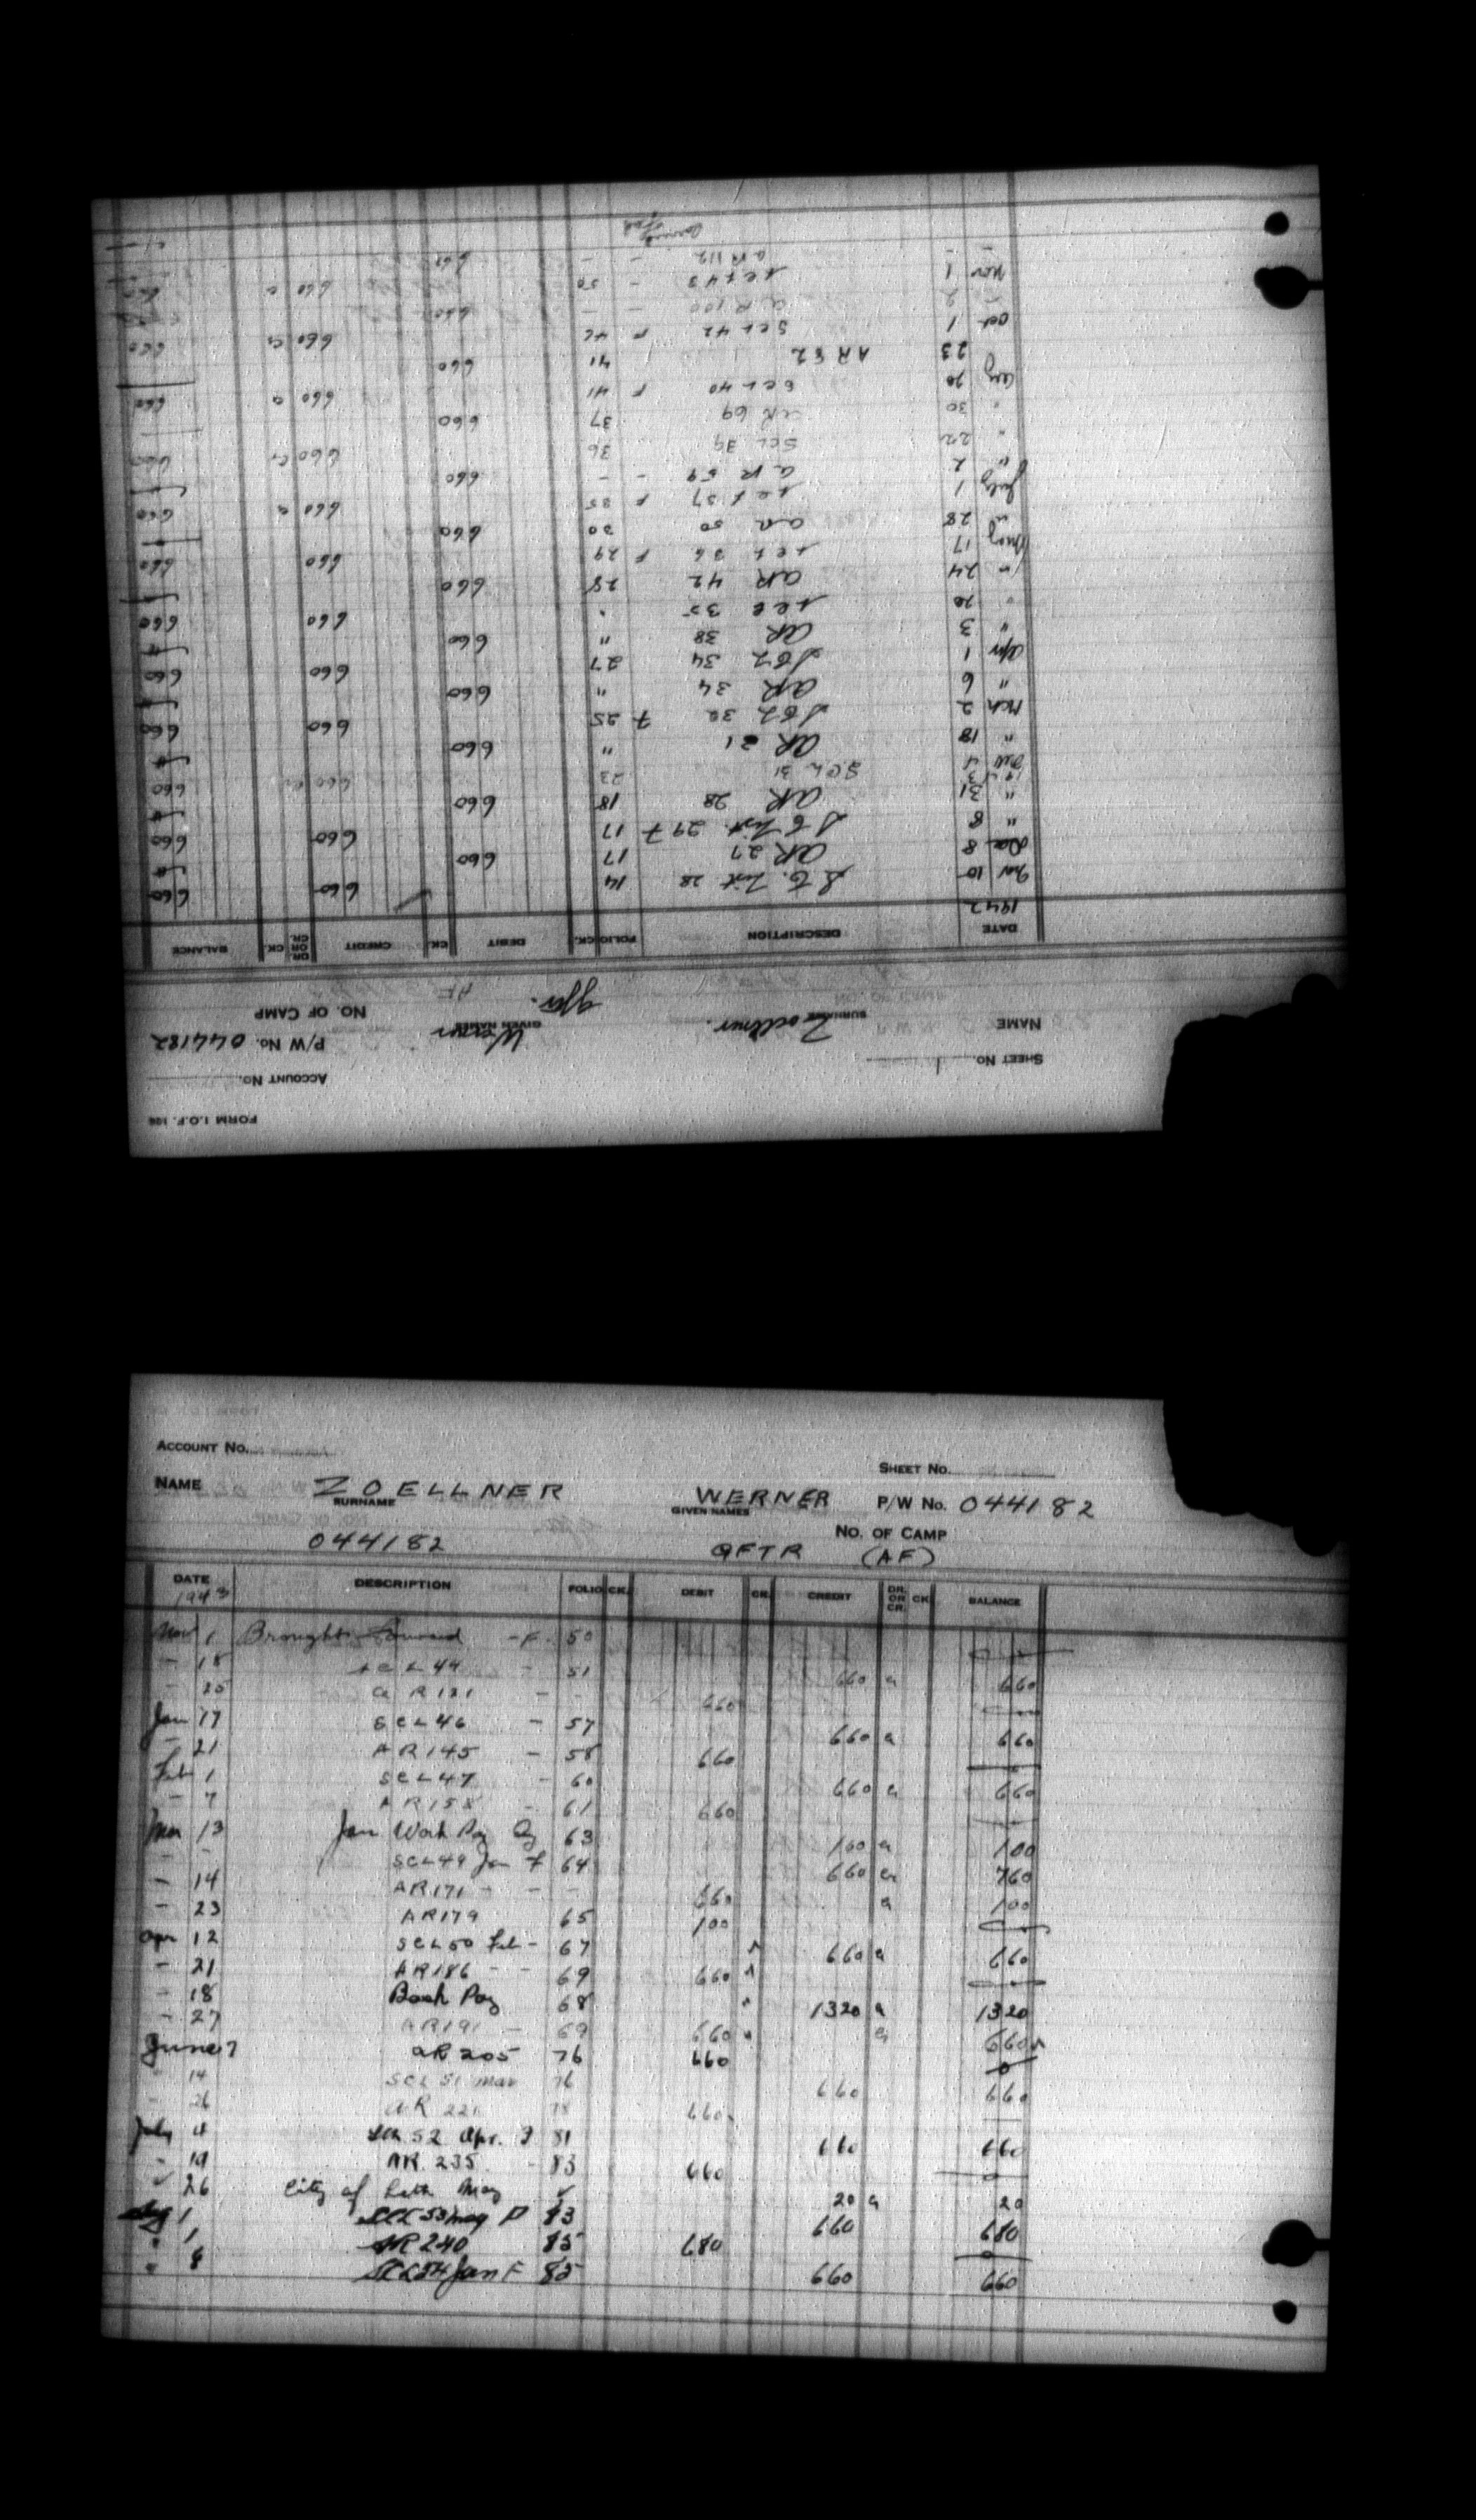 FORM I.O.F. 106
ACCOUNT No.
SHEET No. 1
P/W No. 044182
NAME Zoellner. Werner
SURNAME GIVEN NAMES
NO. OF CAMP
Gftr.
DATE DESCRIPTION FOLIO CK. DEBIT CK. CREDIT DR. OR CR. CK. BALANCE
1942
Nov 10 28 14 660 660
Dec 8 AR 27 17 660
" 8 29 F 17 660 660
" 31 AR 28 18 660
4 SCL 31 23 660 Cr 660
" 18 AR 31 " 660
Mch 2 32 F 25 660 660
" 6 AR 34 " 660
Apr 1 34 27 660 660
" 3 AR 38 " 660
" 20 35 660 660
24 AR 42 28 660
17 36 F 29 660 660
28 AR 50 30 660
July 1 37 F 35 660 660
" 2 AR 59 - - 660
" 22 SCL 39 36 660 Cr 660
" 30 AR 69 37 660
Aug 20 SCL 40 F 41 660 660
23 AR 82 41 660
Oct 1 SCL 42 F 46 660 Cr 660
- 2 AR 100 - - 660
Nov 1 43 - 50 660 660
- - AR 112 - - 660
ACCOUNT No.
SHEET No.
NAME ZOELLNER WERNER P/W No. 044182
SURNAME GIVEN NAMES
NO. OF CAMP
044182 GFTR (AF)
DATE DESCRIPTION FOLIO CK. DEBIT CK. CREDIT DR. OR CR. CK. BALANCE
1943
Nov 1 Brought Forward - F. 50
- 18 SCL 44 - 51 660 660
- 25 AR 121 - - 660
Jan 17 SCL 46 - 57 660 660
- 21 AR 145 - 58 660
Feb 1 SCL 47 - 60 660 660
- 7 AR 158 - 61 660
Mar 13 Jan Work Pay 63 100 100
- - SCL 49 Jan F 64 660 760
- 14 AR 171 - - - 660 100
- 23 AR 179 65 100
Apr 12 SCL 50 Feb - 67 660 660
- 21 AR 186 - - 69 660
- 18 Back Pay 68 1320 1320
- 27 AR 191 - 69 660 660
June 7 AR 205 76 660 0
" 14 SCL 51 Mar 76 660 660
- 26 AR 221 78 660
July 4 52 Apr. 81 660 660
- 19 AR. 235 - 83 660 0
26 City of May 20 20
1 SCL 53 May 83 660 680
" 1 AR 240 85 680 0
" 8 SCL 54 F 85 660 660